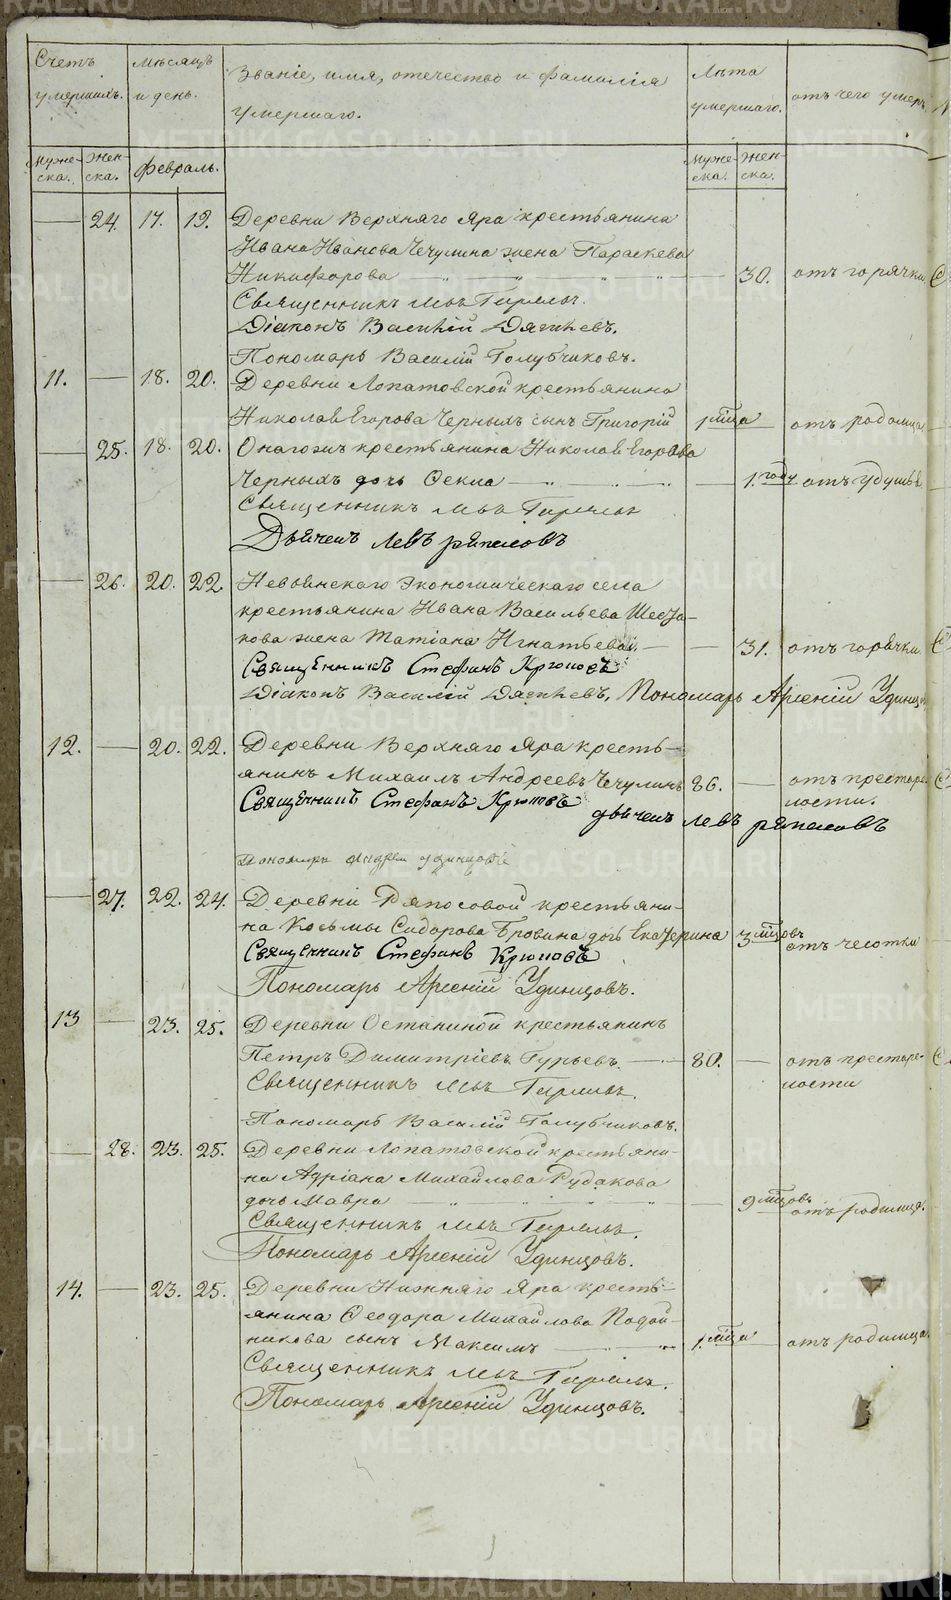 Счетъ умершихъ.
Мѣсяцъ и день.
Званіе, имя, отечество и фамилія умершаго.
Лѣта умершаго.
отъ чего умеръ
Муже-ска. Жен-ска. Февраль. Муже-ска. Жен-ска.
24. 17. 19. Деревни Верхняго Яра крестьянина
Ивана Иванова Чечулина жена Параскева
Никифорова 30. отъ горячки
Священникъ Левъ
Діаконъ Василій Дягилевъ.
Пономарь Василій Голубчиковъ.
11. 18. 20. Деревни Лопатовской крестьянина
Николая Егорова Черныхъ сынъ Григорій 1 мѣсца отъ родимца
25. 18. 20. Онагожъ крестьянина Николая Егорова
Черныхъ дочь Ѳекла 1. году отъ удушья
Священникъ Левъ
Дьячекъ Левъ Ряпасовъ
26. 20. 22. Невьянскаго экономическаго села
крестьянина Ивана Васильева Шесta-
кова жена Татіана Игнатьева 31. отъ горячки
Священникъ Стефанъ Крюковъ
Діаконъ Василій Дягилевъ, Пономарь Арсеній Удинцовъ
12. 20. 22. Деревни Верхняго Яра кресть-
янинъ Михаилъ Андреевъ Чечулинъ 86. отъ престаре-
лости.
Священникъ Стефанъ Крюковъ
дьячекъ левъ ряпасовъ
пономарь Андрей удинцовъ
27. 22. 24. Деревни Ряпосовой крестьяни-
на Козьмы Сидорова Бровина дочь Екатерина 3 мѣсцовъ отъ чесотки
Священникъ Стефанъ Крюковъ
Пономарь Арсеній Удинцовъ.
13 23. 25. Деревни Останиной крестьянинъ
Петръ Димитріевъ Гурьевъ. 80. отъ престаре-
лости
Священникъ Левъ
Пономарь Василій Голубчиковъ.
28. 23. 25. Деревни Лопатовской крестьяни-
на Адріана Михайлова Рудакова
дочь Мавра 9 мѣсцовъ отъ родимца.
Священникъ Левъ
Пономарь Арсеній Удинцовъ.
14. 23. 25. Деревни Нижняго Яра кресть-
янина Ѳеодора Михайлова Подой-
никова сынъ Максимъ 1. мѣсца отъ родимца.
Священникъ Левъ
Пономарь Арсеній Удинцовъ.
METRIKI.GASO-URAL.RU